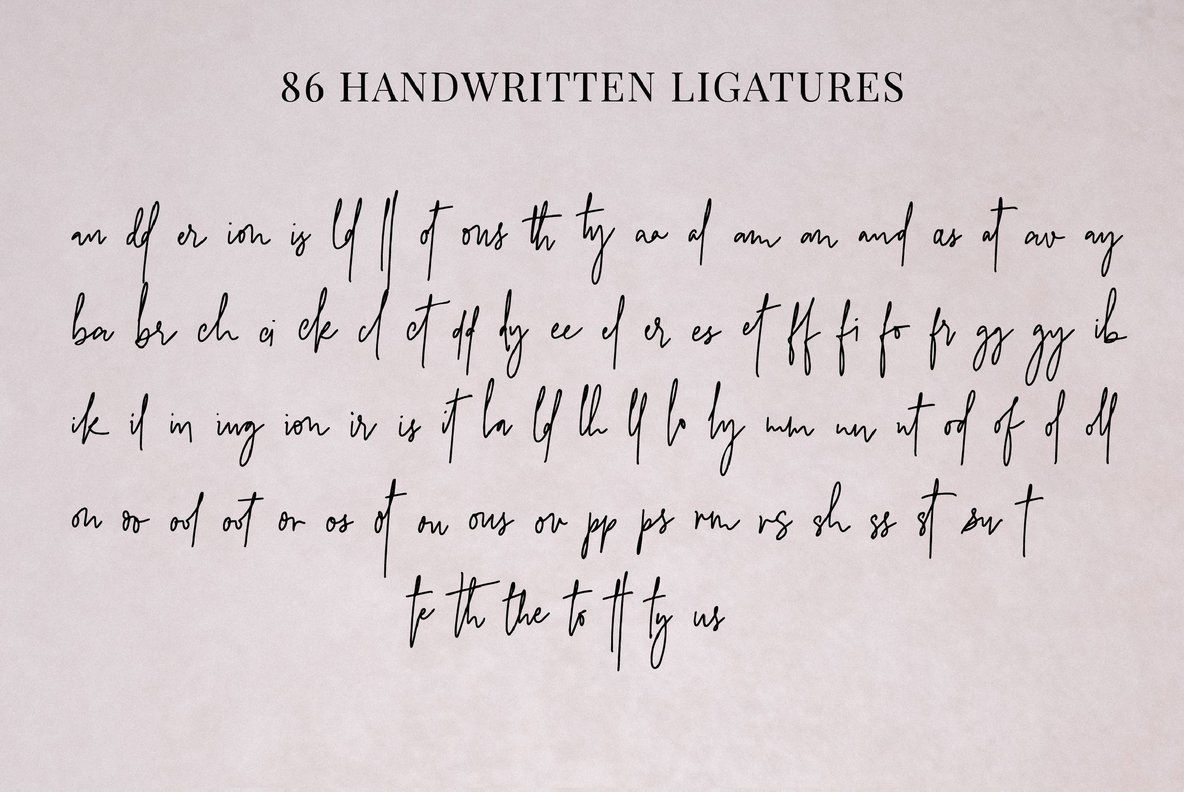 86 HANDWRITTEN LIGATURES
an dd er ion is ld ll ot ous th ty aa al am an and as at av ay
ba br ch ci ck cl ct dd dy ee el er es et ff fi fo fr gg gy ib
ik il in ing ion ir is it la ld lh ll lo ly mm nn nt od of ol oll
on oo ool oot or os ot ou ous ov pp ps rm rs sh ss st su t
te th the to tt ty us